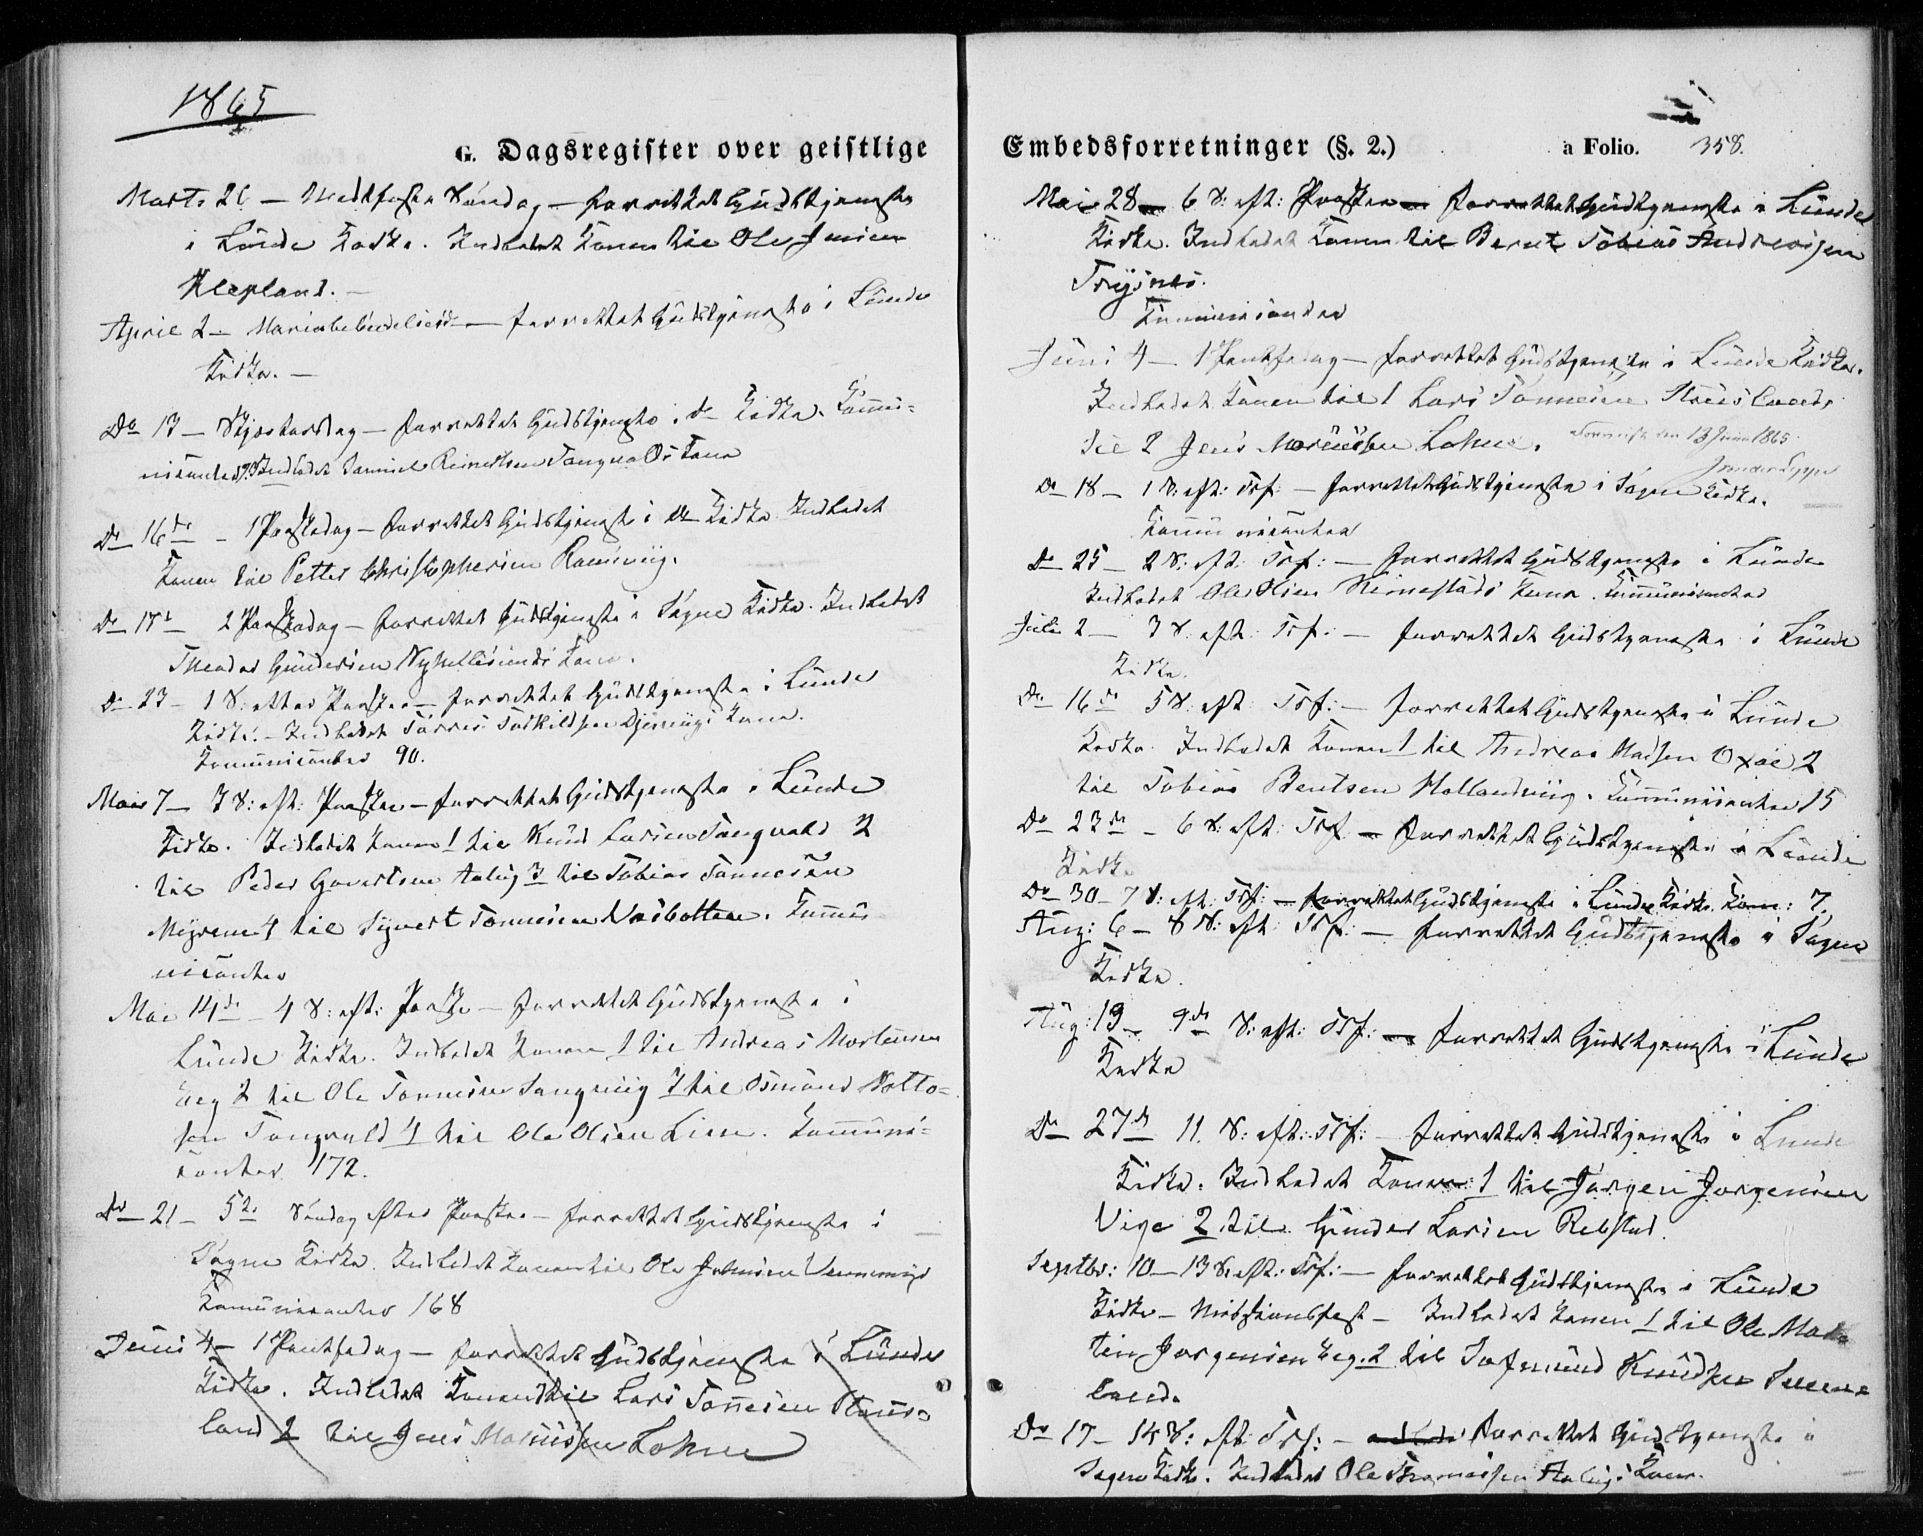 1865
G. Dagsregister over geistlige
Marts 26 — Midtfaste Søndag — forrettet Gudstjeneste
i Lunde Kirke. Indledet Konen til Ole Jensen
Klepland. —
April 2 — Mariæbebudelsesd — forrettet Gudstjeneste i Lunde
Kirke. —
Do 13 — Skjærtorsdag — forrettet Gudstjeneste i do Kirke. Kommu-
nikanter Indledet Samuel Reinertsen Tangen Kone
Do 16de — 1 Paaskedag — forrettet Gudstjeneste i do Kirke Indledet
Konen til Petter Christophersen Romsviig.
Do 17de 2 Paaskedag — forrettet Gudstjeneste i Søgne Kirke. Indledet
Theodor Gundersen Kone.
Do 23 — 1 S: efter Paaske — forrettet Gudstjeneste i Lunde
Kirke. — Indledet Tørres Torkildsen Kone.
Kommunicanter 90.
Mai 7 — 3 S: eft: Paaske — forrettet Gudstjeneste i Lunde
Kirke. Indledet Konen 1 til Knud Larsen Tangvald 2
til Peder Govertsen Aalug 3 til Tobias Tønnesen
Myren 4 til Syvert Tønnesen Næsbotten. Kommu-
nicanter
Mai 14de — 4 S: eft: Paaske — forrettet Gudstjeneste i
Lunde Kirke. Indledet Konen 1 til Andreas Mortensen
Eeg 2 til Ole Tønnesen Langviig 3 til Osmund Notto-
sen Tangvald 4 til Ole Olsen Lien. Kommuni-
canter 172.
Do 21 — 5te Søndag efter Paaske — forrettet Gudstjeneste i
Søgne Kirke. Indledet Konen til Ole Johnsen
Kommunicanter 168
Juni 4 — 1 Pintsedag — forrettet Gudstjeneste i Lunde
Kirke. Indledet Konen 1 til Lars Tønnesen Staus-
land 2 til Jens Lohne
Embedsforretninger (§. 2.) a Folio. 358.
Mai 28 — 6 S: eft: Paaske — forrettet Gudstjeneste i Lunde
Kirke. Indledet Konen til Bernt Tobias Andreassen
Trysnes.
Kommunicanter
Juni 4 — 1 Pintsedag — forrettet Gudstjeneste i Lunde Kirke.
Indledet Konen til 1 Lars Tønnesen Stausland,
til 2 Jens Lohne. den 13 Juni 1865.
Do 18 — 1 S: eft: Trf: — forrettet Gudstjeneste i Søgne Kirke.
Kommunicanter
Do 25 — 2 S: eft: Trf: — forrettet Gudstjeneste i Lunde
Indledet Ole Olsen Repstads Kone. Kommunicanter
Juli 2 — 3 S. eft: Trf: — forrettet Gudstjeneste i Lunde
Kirke.
Do 16de 5 S. eft: Trf: — forrettet Gudstjeneste i Lunde
Kirke. Indledet Konen 1 til Andreas Madsen Oxøe 2
til Tobias Bentsen Høllandviig. Kommunicanter 15
Do 23de — 6 S. eft: Trf — forrettet Gudstjeneste i Lunde
Kirke
Do 30 — 7 S: eft: Trf: — forrettet Gudstjeneste i Lunde Kirke. Kom: 7.
Aug: 6 — 8 S. eft: Trf: — forrettet Gudstjeneste i Søgne
Kirke.
Aug: 13 — 9de S: eft: Trf: — forrettet Gudstjeneste i Lunde
Kirke
Do 27de 11. S: eft: Trf: — forrettet Gudstjeneste i Lunde
Kirke. Indledet Konen: 1 til Jørgen Jørgensen
Vige 2 til Gunder Larsen Rebstad.
Septbr: 10 — 13 S: eft: Trf: — forrettet Gudstjeneste i Lunde
Kirke — Missionsfest — Indledet Konen 1 til Ole Mar-
tin Jørgensen Eeg. 2 til Knudsen
land.
Do 17 — 14 S: eft: Trf: — forrettet Gudstjeneste i
Søgne Kirke. Indledet Ole Thomassen Aalugs Kone.